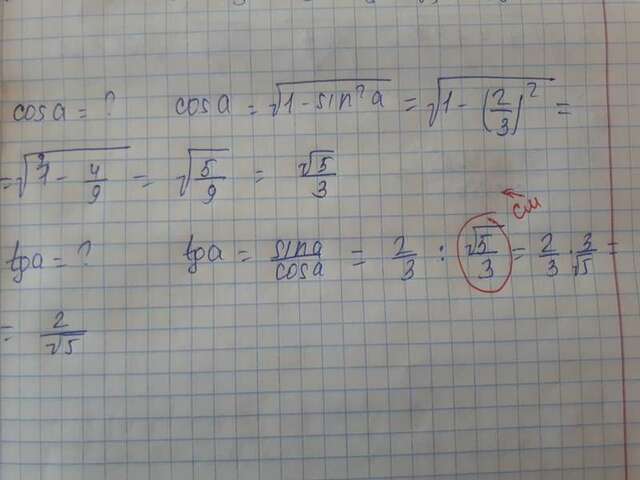 cosa = ? cosa = √(1 - sin²a) = √(1 - (2/3)²) =
= √(1 - 4/9) = √(5/9) = √5/3
см
tga = ? tga = sina/cosa = 2/3 : √5/3 = 2/3 · 3/√5 =
= 2/√5